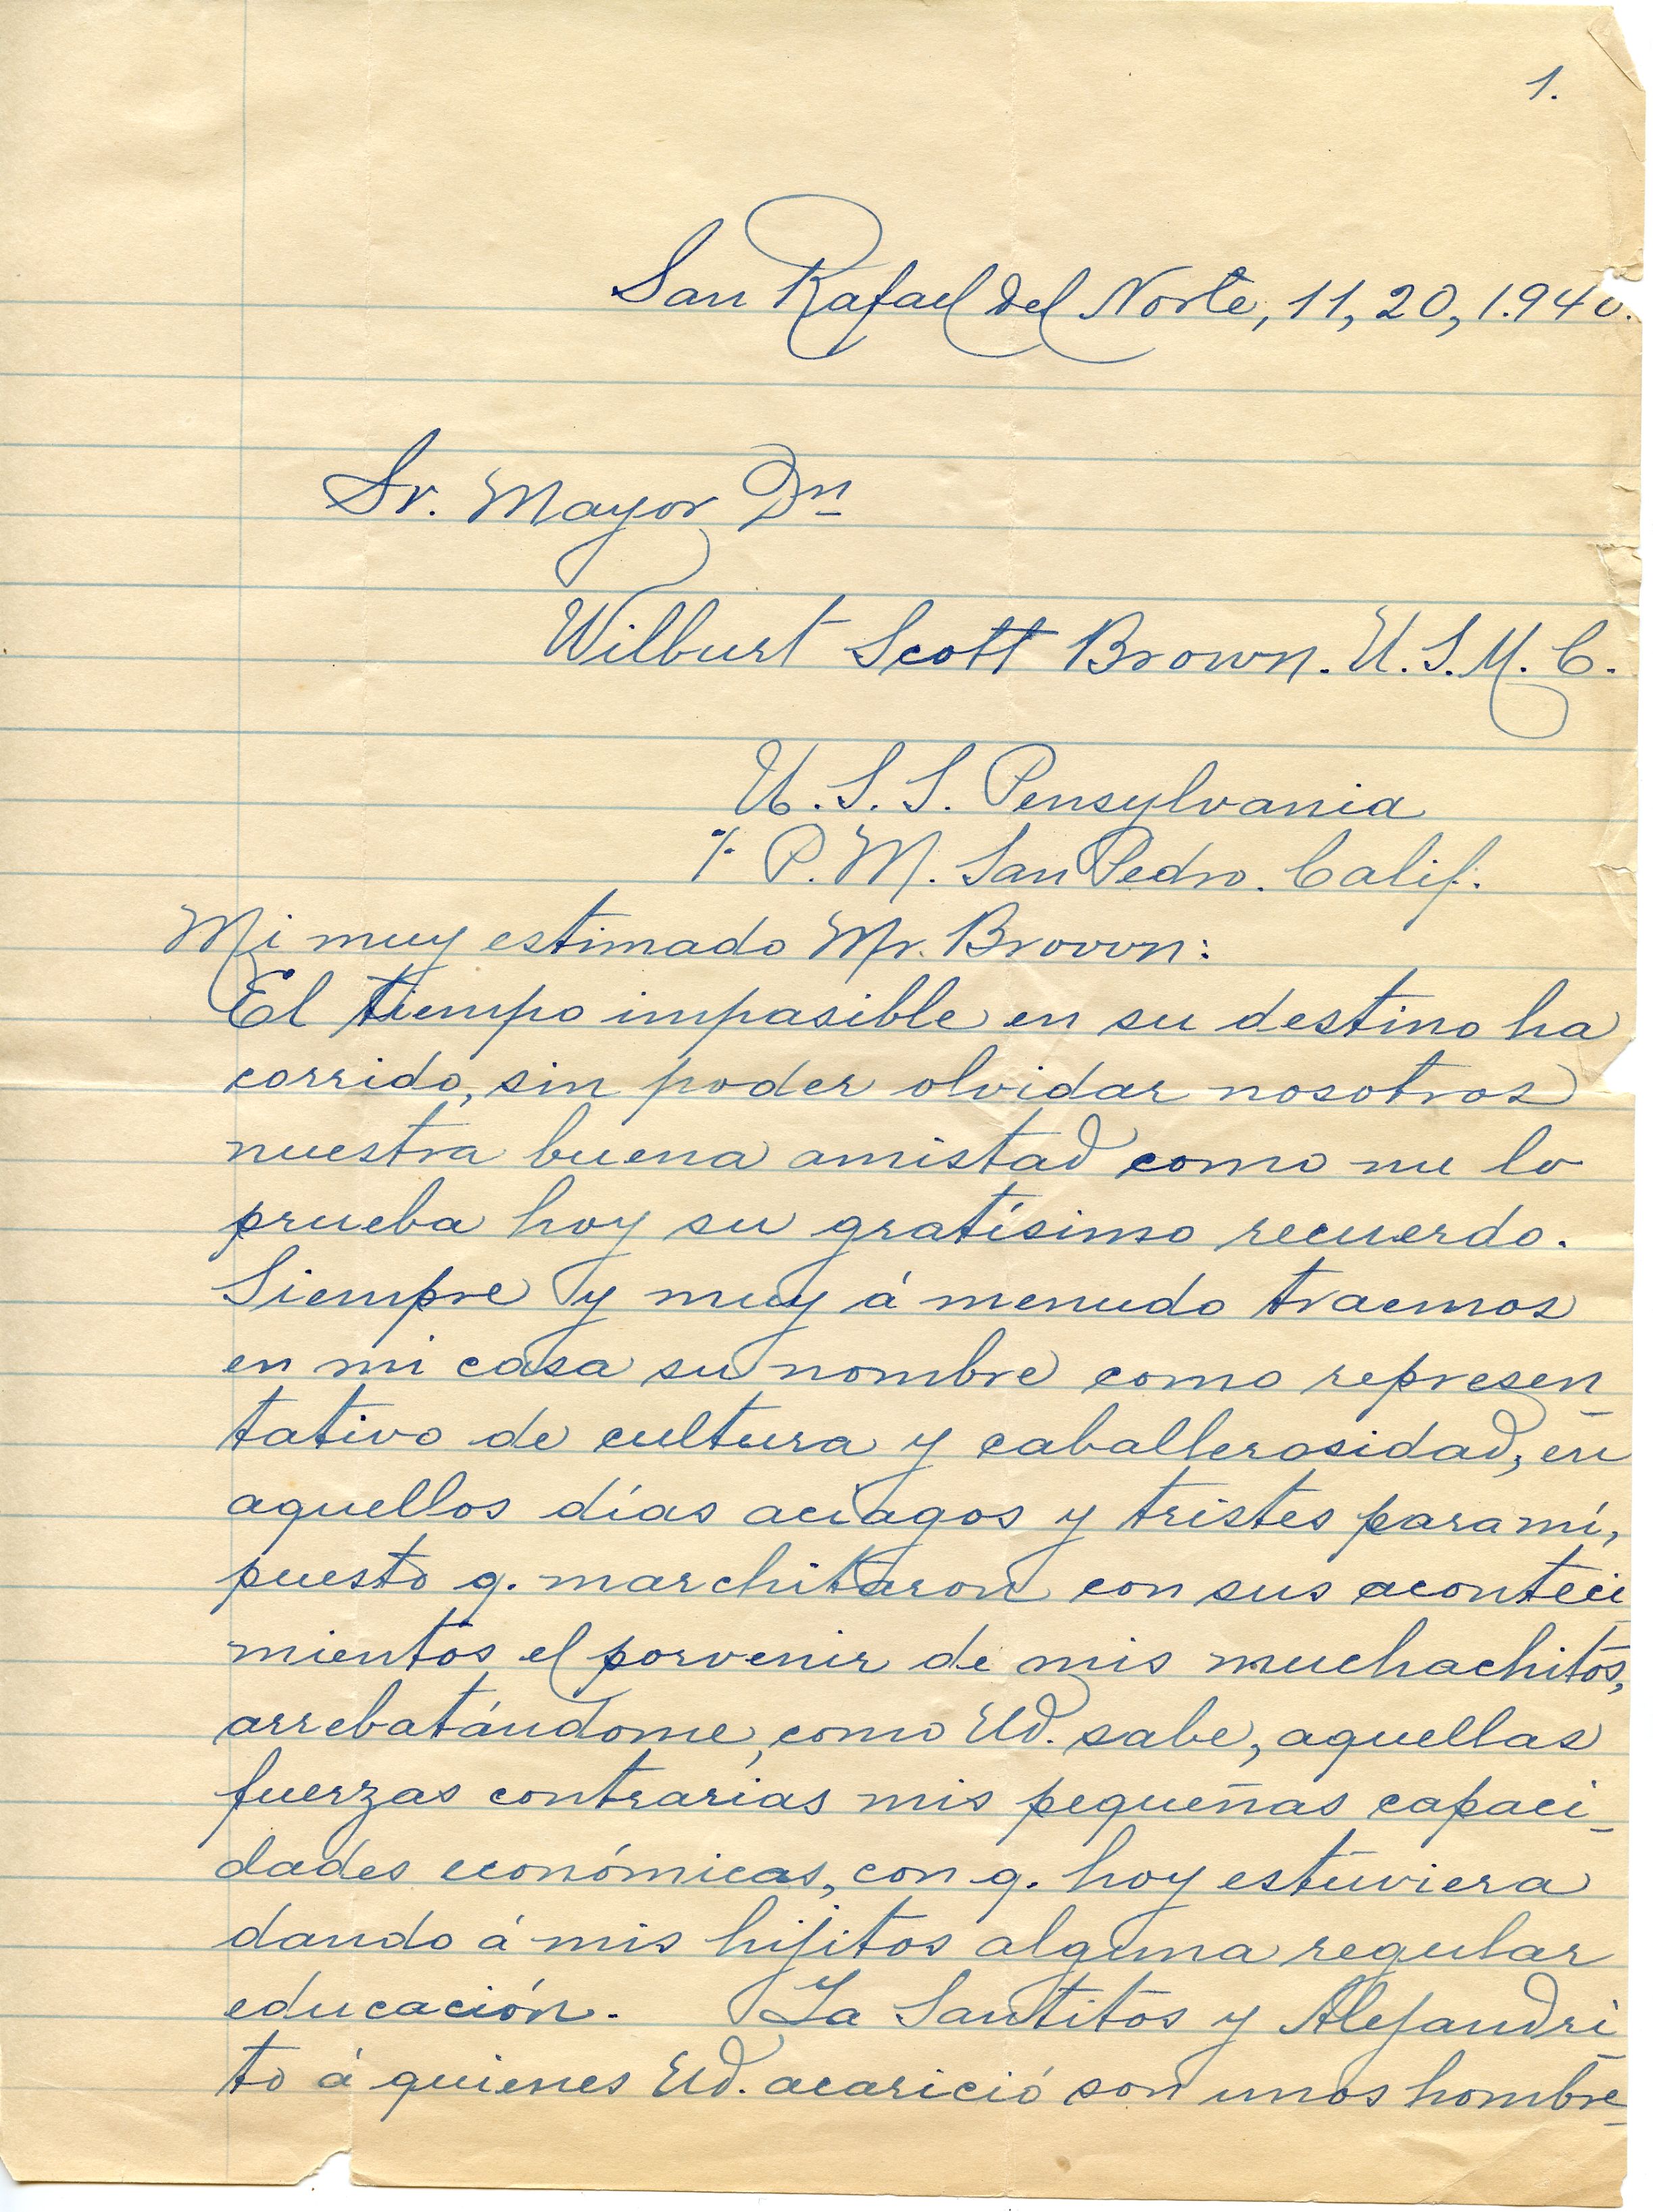 1.
San Rafael del Norte, 11, 20, 1.940.
Sr. Mayor Dn
Wilburt Scott Brown. U. S. M. C.
U. S. S. Pensylvania
%. P. M. San Pedro. Calif.
Mi muy estimado Mr. Brown:
El tiempo impasible en su destino ha
corrido, sin poder olvidar nosotros
nuestra buena amistad como me lo
prueba hoy su gratísimo recuerdo.
Siempre y muy á menudo traemos
en mi casa su nombre como represen_
tativo de cultura y caballerosidad, en
aquellos días aciagos y tristes para mí,
puesto q. marchitaron con sus aconteci_
mientos el porvenir de mis muchachitos,
arrebatándome, como Ud. sabe, aquellas
fuerzas contrarias mis pequeñas capaci_
dades económicas, con q. hoy estuviera
dando á mis hijitos alguna regular
educación. La Santitos y Alejandri_
to á quienes Ud. acarició son unos hombre_